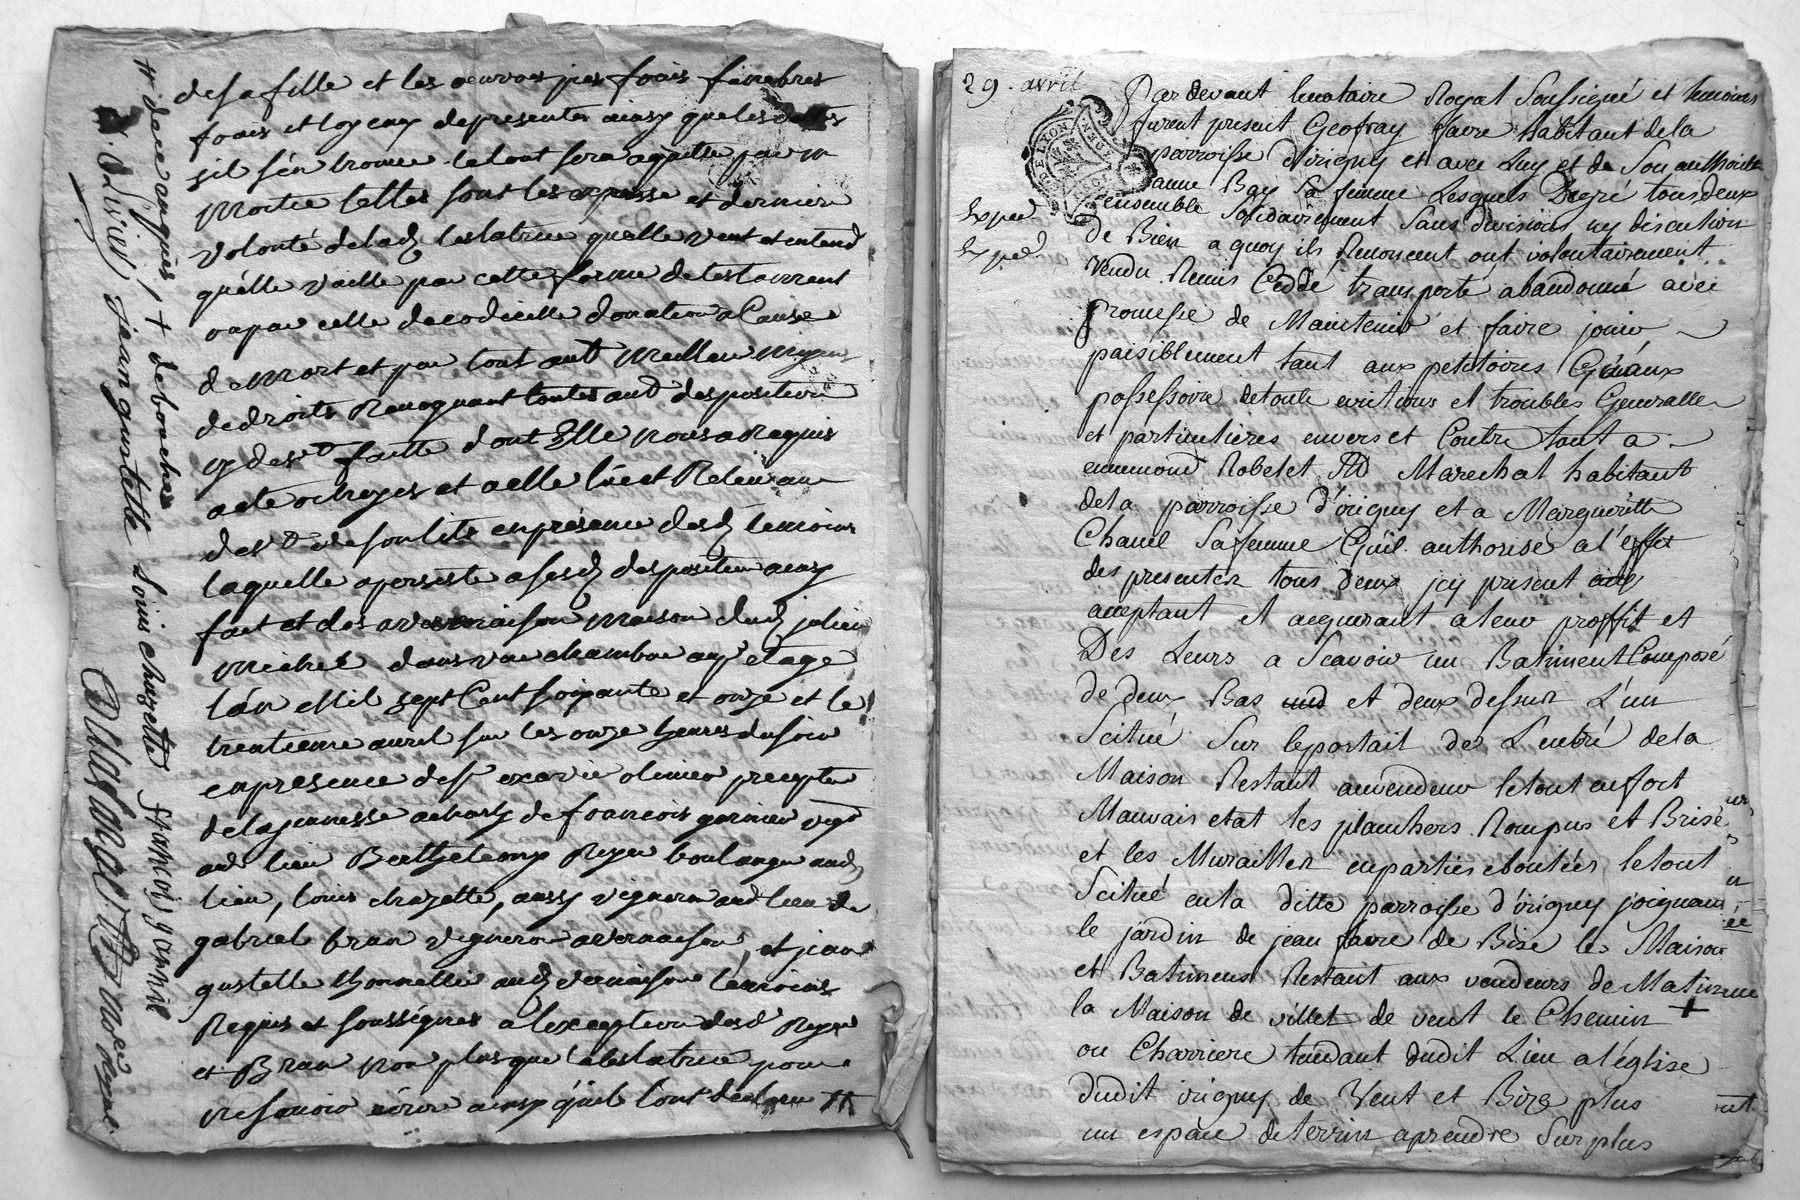 de sa fille et les œuvres pies frais funebres
frais et loyeaux de presentes ainsy que les dettes
sil s'en trouve le tout sera aquitté par
moitie telles sont les et derniere
volonté de lad testatrice quelle veut et entend
quelle vaille par cette forme de testament
ou par celle de codicelle donation a Cause
de mort et par tout autt meilleur moyens
de droits Revoquant toutes autt despositions
faitte dont Elle nous a Requis
acte octroyer et a elle lüe et Releüe au
devt de son lits en présence desd temoins
laquelle a persisté a sesd despositions ainsy
fait et a vernaison maison dud julien
michel dans une chambre au etage
l'an Mil sept Cent soixante et onze et le
trentieme avril sur les onze heures du soir
en presence de sr exavie olivier precepteur
de la jeunesse a charly de francois garnier vigon
aud lieu Berthelemy Reyre boulanger aud
lieu, louis chazette, aussy vigneron aud lieu de
gabriel bran vigneron a vernaison, et jean
gustelle aud vernaison temoins
Requis et soussignes a l'exception desd Reyre
et Bran non plus que la testatrice pour
ne savoir écrire ainsy qu'ils l'ont declaré #
# de ce enquis / + debouche
jean gustelle Louis chazette francois garnié
29. avril
Par devant lenotaire Royal Soussigné et temoins
furent present Geofray favre habitant dela
parroisse d'irigny et avec Luy et de Son authorité
anne Bay Sa femme Lesquels De gré tous deux
ensemble Solidairement Sans division ny discution
de Bien a quoy ils Renoncent ont volontairement
Vendu Remis Ceddé transporté abandonné avec
promesse de Maintenir et faire jouir
paisiblement tant aux petitoires Génaux
possessoire detoute evictions et troubles Generalle
et particulieres envers et Contre tout a
ennemond Robelet Md Marechal habitant
dela parroisse d'irigny et a Margueritte
Chanel Safemme Güil authorise a l'effet
des presenter tous deux jcy present
acceptant et acquerant a leur proffit et
Des Leurs a Scavoir un Batiment Composé
de deux Bas et deux dessur L'un
Scitué Sur leportail de L'entré dela
Maison Restant auvendeur letout enfort
Mauvais etat les planchers Rompus et Brisé
et les Murailler enparties eboulées letout
Scitué enla ditte parroisse d'irigny joignant
le jardin de jean favre de Bise les Maison
et Batimens Restant aux vendeurs de Matin
la Maison de villet de vent le Chemin +
ou Charriere tendant dudit Lieu a l'église
dudit irigny de Vent et Bize plus
un espace deterrin aprendre Sur plus
Exped
Exped
GE. DE LYON